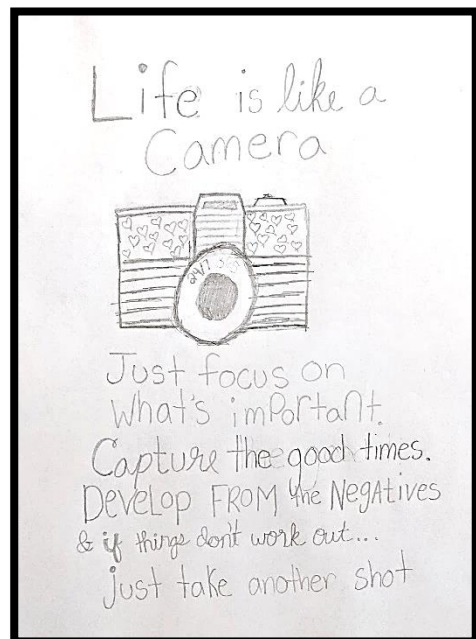 Life is like a
Camera
24/7
Just focus on
What's imPortant.
Capture the good times.
DEVELOP FROM the NEgAtives
& if things don't work out...
just take another shot